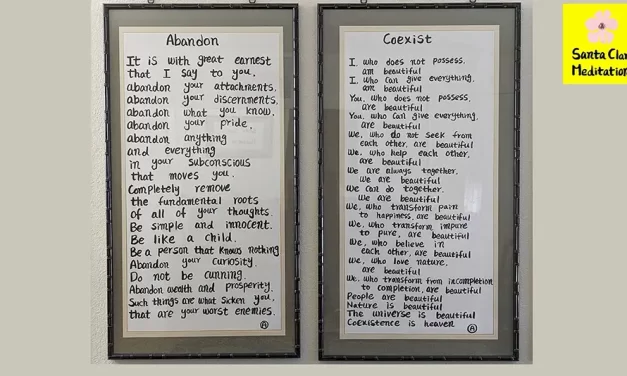 Abandon
It is with great earnest
that I say to you,
abandon your attachments,
abandon your discernments,
abandon what you know,
abandon your pride,
abandon anything
and everything
in your subconscious
that moves you.
Completely remove
the fundamental roots
of all of your thoughts.
Be simple and innocent.
Be like a child.
Be a person that knows nothing
Abandon your curiosity.
Do not be cunning.
Abandon wealth and prosperity.
Such things are what sicken you,
that are your worst enemies.
Coexist
I, who does not possess,
am beautiful
I, who can give everything,
am beautiful
You, who does not possess,
are beautiful
You, who can give everything,
are beautiful
We, who do not seek from
each other, are beautiful
We, who help each other,
are beautiful
We are always together.
We are beautiful
We can do together.
We are beautiful
We, who transform pain
to happiness, are beautiful
We, who transform impure
to pure, are beautiful
We, who believe in
each other, are beautiful
We, who love nature,
are beautiful
We, who transform from incompletion
to completion, are beautiful
People are beautiful
Nature is beautiful
The universe is beautiful
Coexistence is heaven
Santa Clar
Meditation